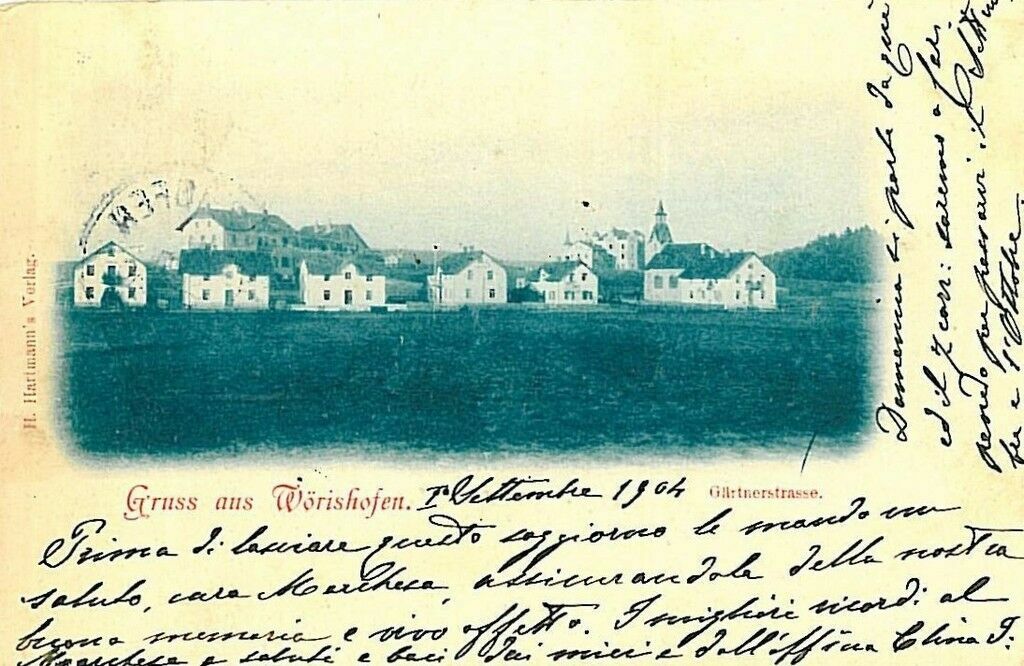 H. Hartmann's Verlag.
Gruss aus Wörishofen.
Gärtnerstrasse.
1º Settembre 1904
Prima di lasciare questo soggiorno le mando un
saluto, cara Marchesa, assicurandola della nostra
buona memoria e vivo affetto. I migliori ricordi al
Marchese e saluti e baci dai miei e dall'affma Clina T:
Domenica si parte da qui
ed il 7 corr: saremo a
per il
e 1º Ottobre